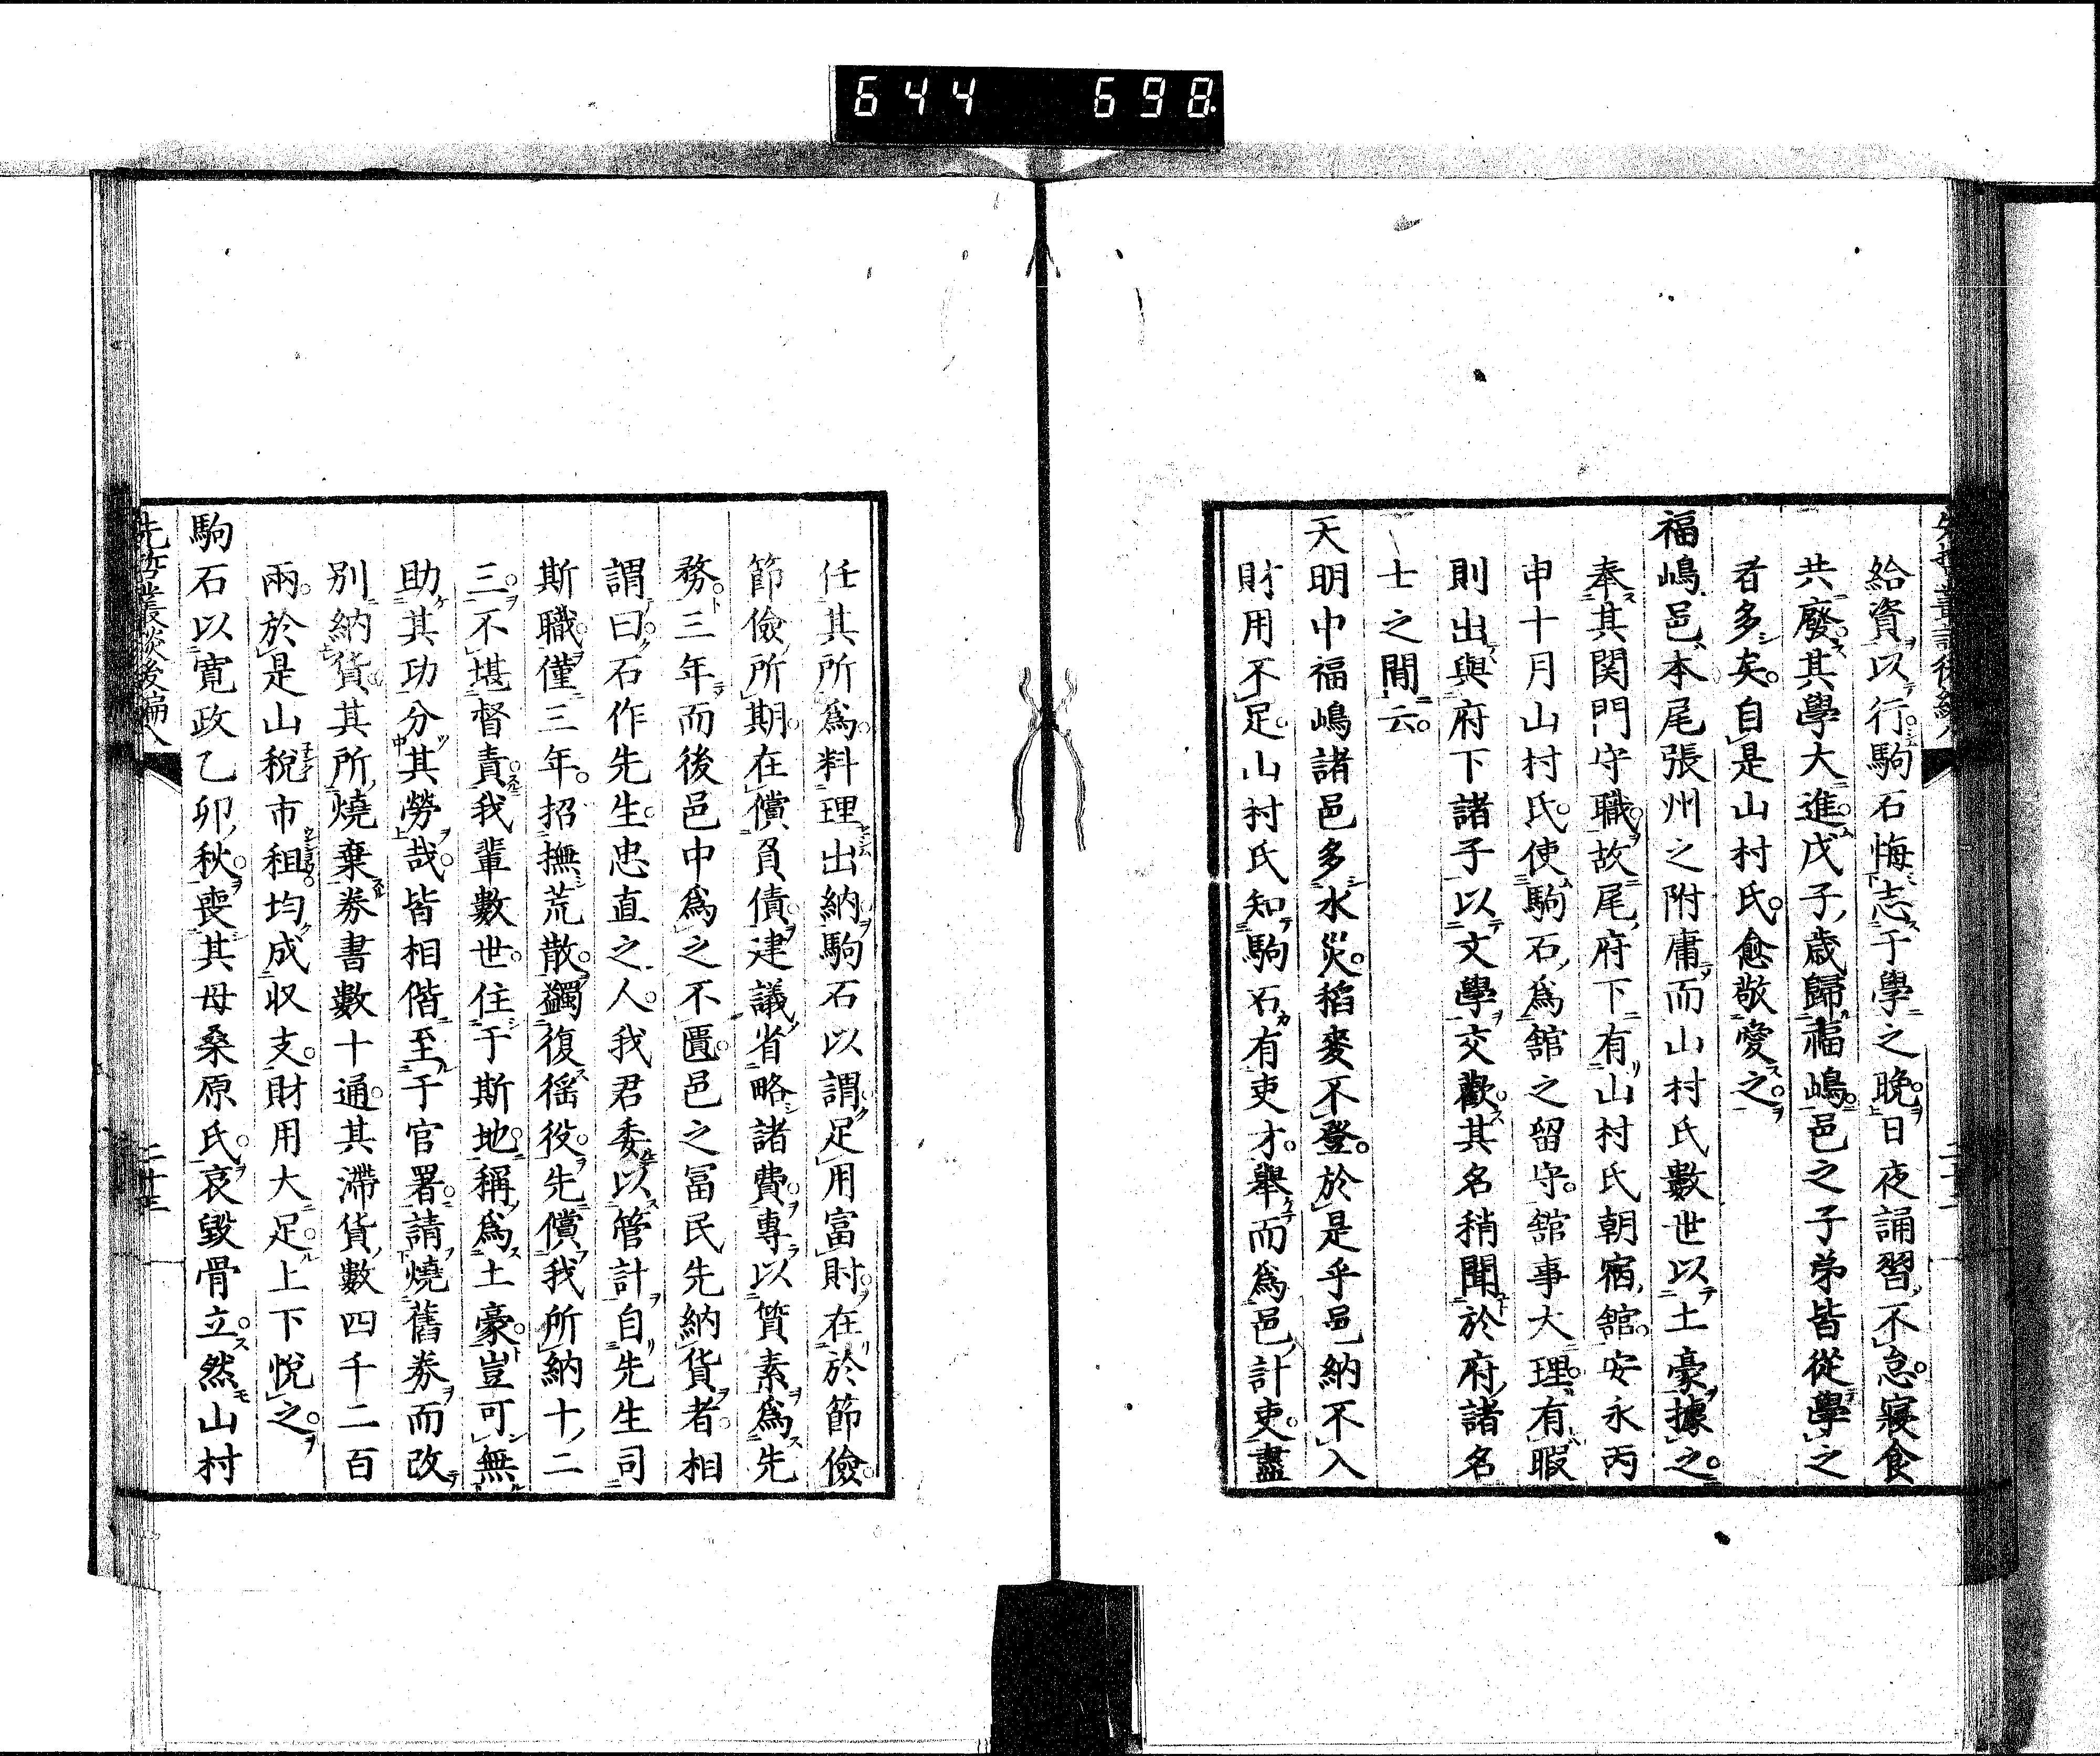 644 698
給資以行駒石悔志于學之晩日夜誦習不怠寢食
共廢其學大進戊子歳歸福嶋邑之子弟皆從學之
者多矣自是山村氏愈敬愛之
福嶋邑本尾張州之附庸而山村氏數世以土豪據之
奉其関門守職故尾府下有山村氏朝宿舘安永丙
申十月山村氏使駒石爲舘之留守舘事大理有暇
則出與府下諸子以文學交歡其名稍聞於府諸名
士之間云
天明中福嶋諸邑多水災稻麥不登於是乎邑納不入
財用不足山村氏知駒石有吏才舉而爲邑計吏盡
任其所爲料理出納駒石以謂足用富財在於節儉
節儉所期在償負債建議省略諸費專以質素爲先
務三年而後邑中爲之不匱邑之冨民先納貨者相
謂曰石作先生忠直之人我君委以管計自先生司
斯職僅三年招撫荒散蠲復徭役先償我所納十二
三不堪督責我輩數世住于斯地稱爲土豪豈可無
助其功分其勞哉皆相偕至于官署請燒舊券而改
別納貨其所燒棄券書數十通其滯貨數四千二百
兩於是山稅市租均成収支財用大足上下悅之
駒石以寛政乙卯秋喪其母桑原氏哀毀骨立然山村
先哲叢談後編八 二十三